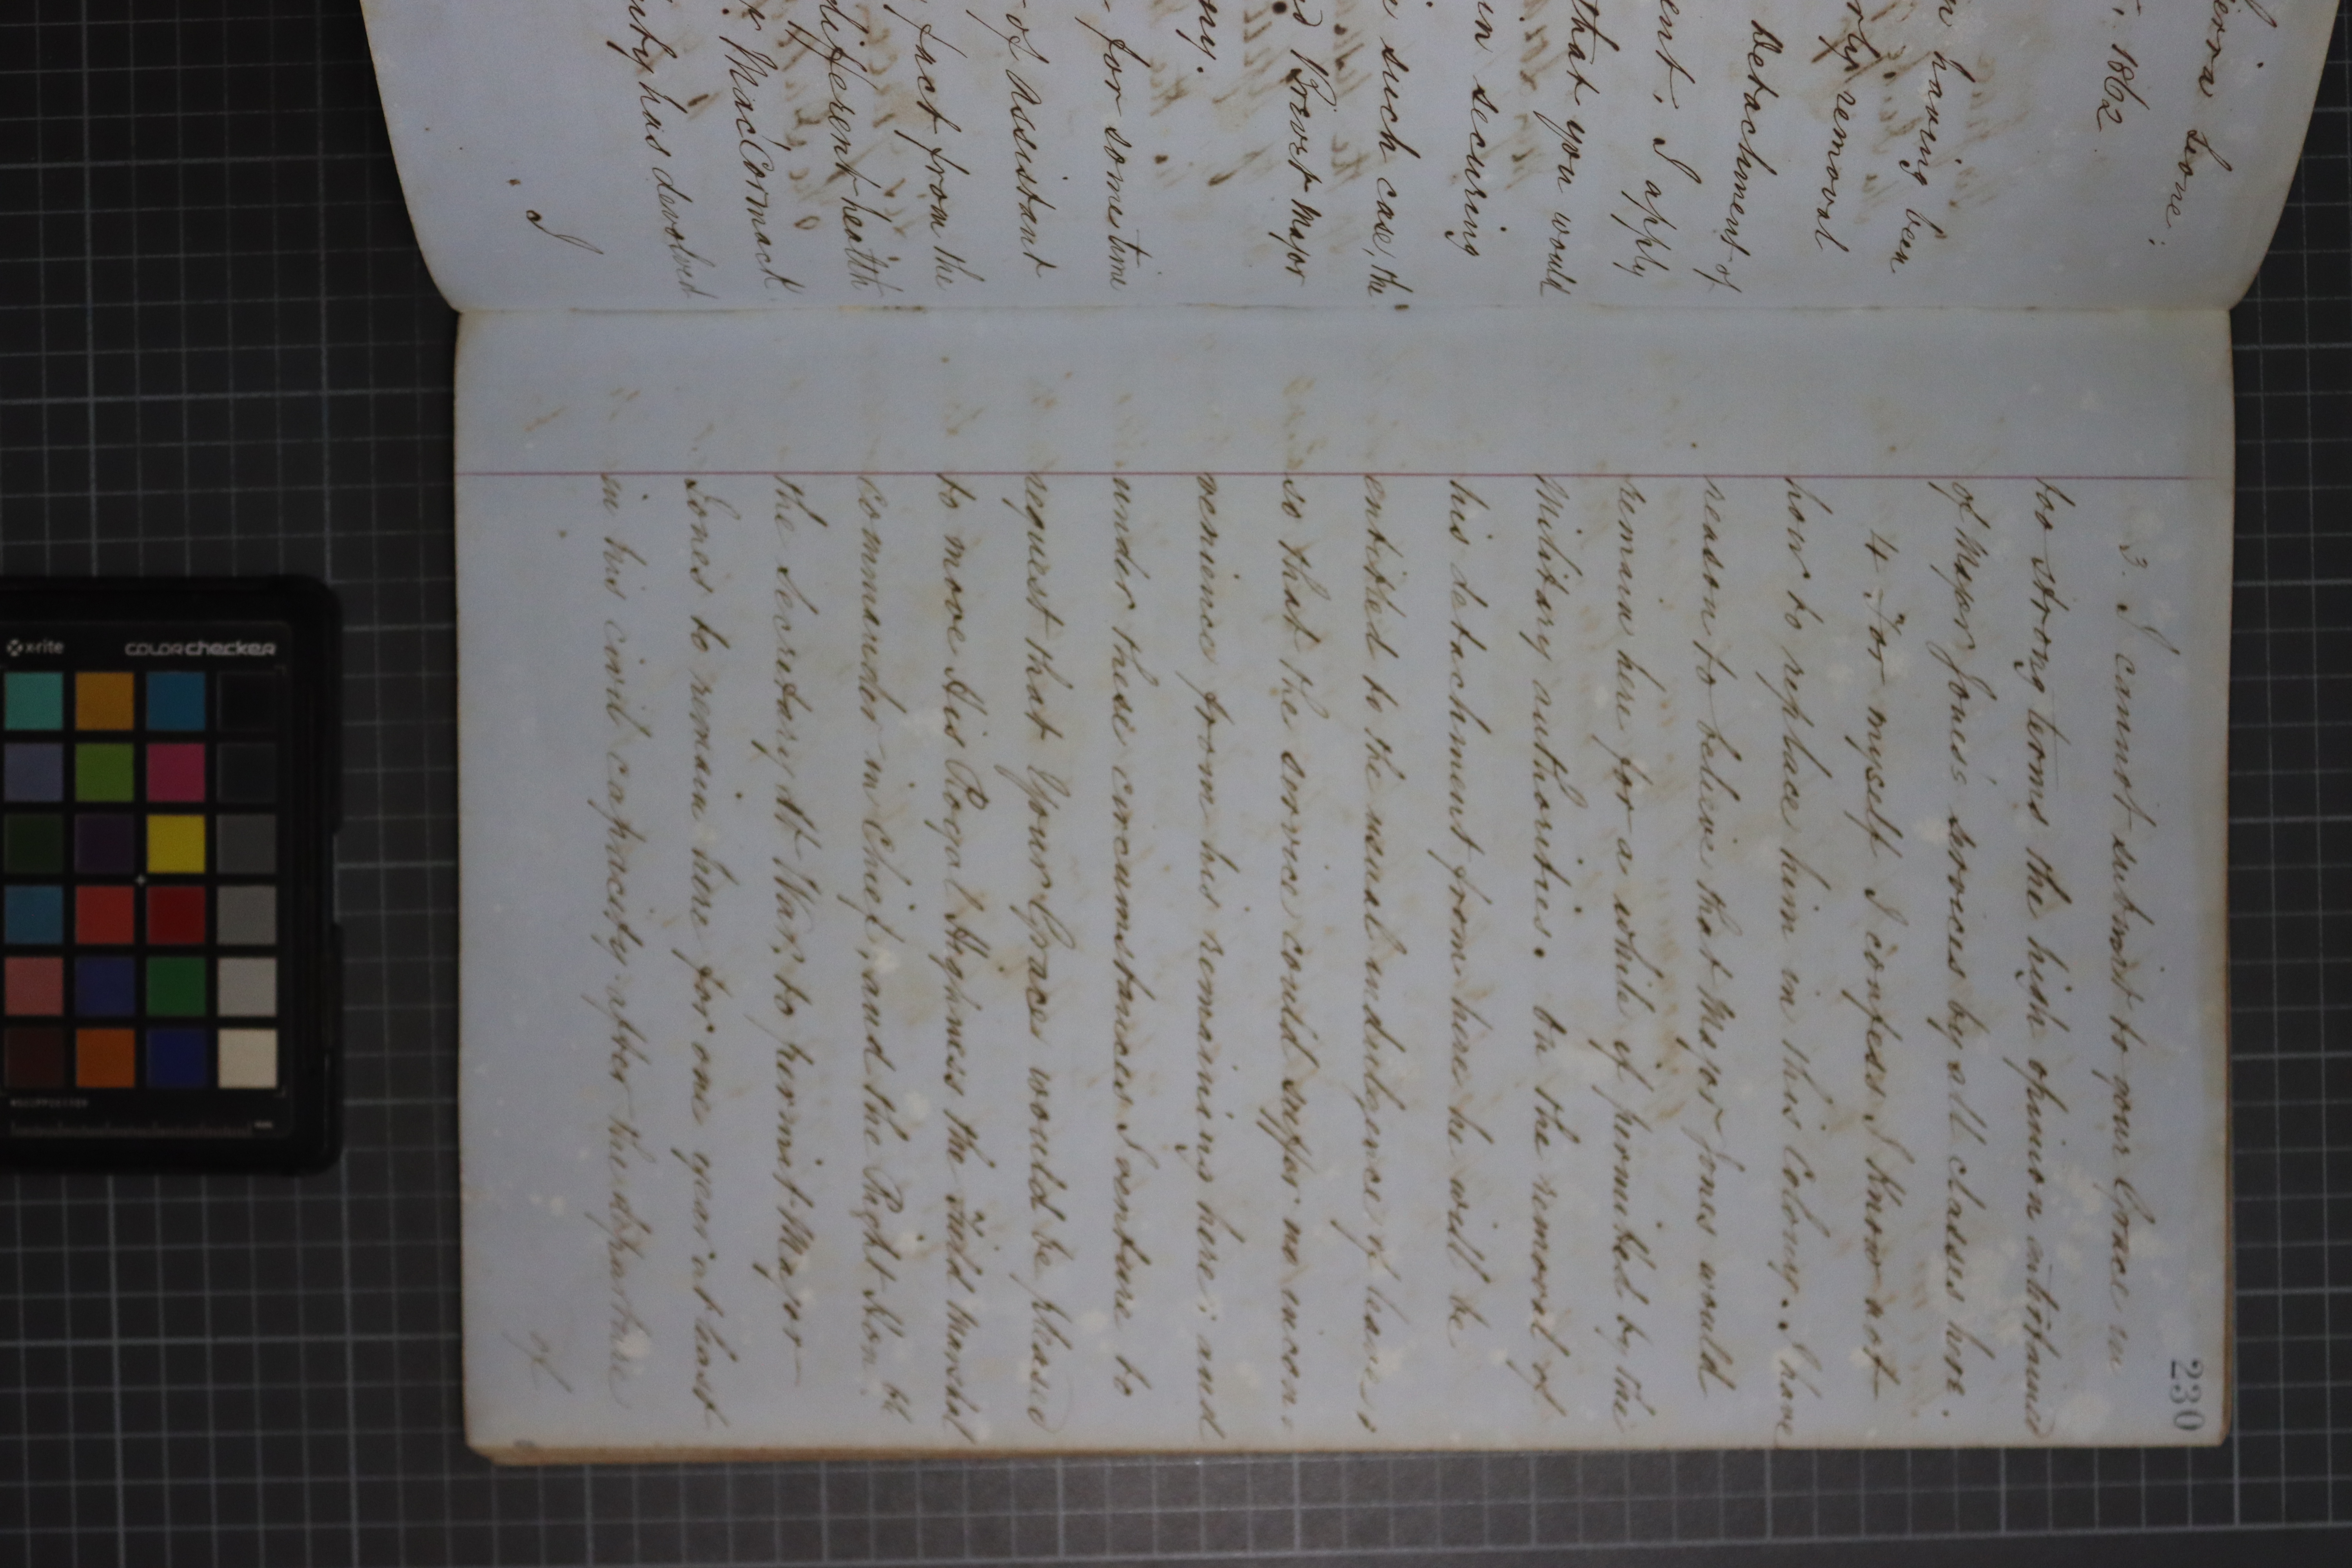 ierra Leone:
1862
n having been
rly removal
Detachment of
ent. I apply
that you would
in securing
such case, the
Brevet Major
ny.
for sometime
of Assistant
fact from the
different health
MacCormack
has devolved
I
230
3. I cannot submit to your Grace in
too strong terms the high opinion entertained
of Major Jones's services by all classes here.
4. For myself I confess I know not
how to replace him in this Colony. I have
reason to believe that Major Jones would
remain here for a while if permitted by the
Military authorities. On the removal of
his detachment from here he will be
entitled to the usual indulgence of leave,
so that the service could suffer no incon-
venience from his remaining here; and
under these circumstances I venture to
request that Your Grace would be pleased
to move His Royal Highness the Field Marshal
Commander in Chief, and the Right Hon. ble
the Secretary at War, to permit Major
Jones to remain here for one year at least
in his civil capacity after the departure
of
x-rite
colorchecker